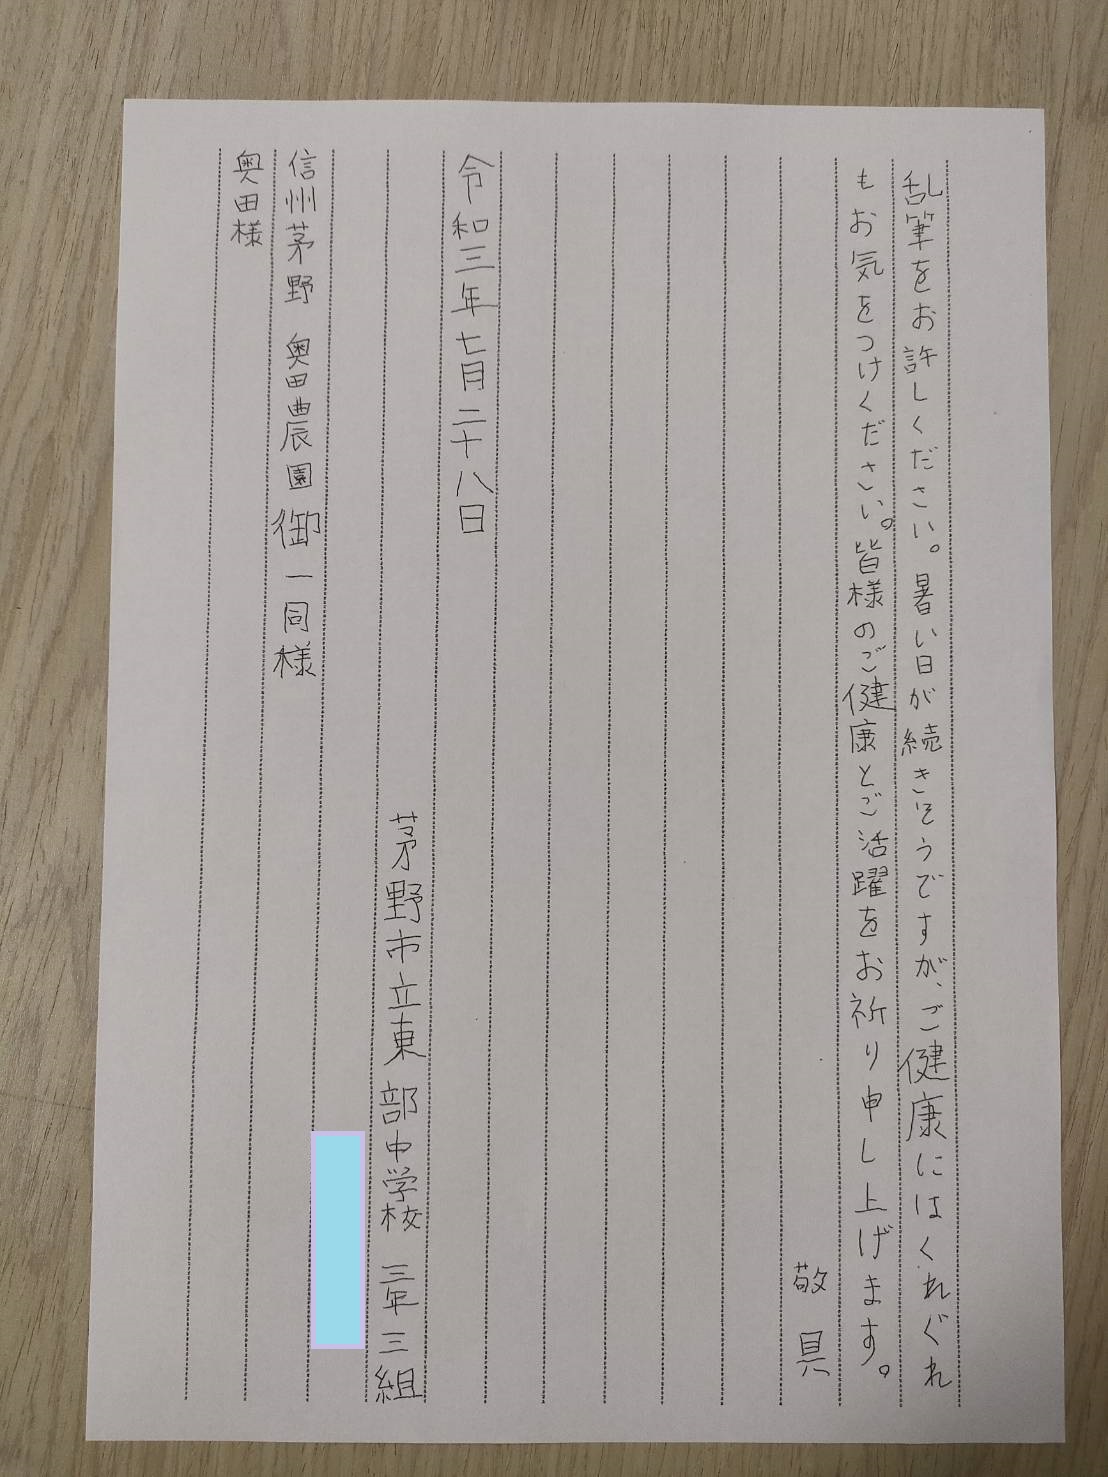 乱筆をお許しください。暑い日が続きそうですが、ご健康にはくれぐれ
もお気をつけください。皆様のご健康とご活躍をお祈り申し上げます。
敬具
令和三年七月二十八日
茅野市立東部中学校 三年三組
信州茅野 奥田農園御一同様
奥田様